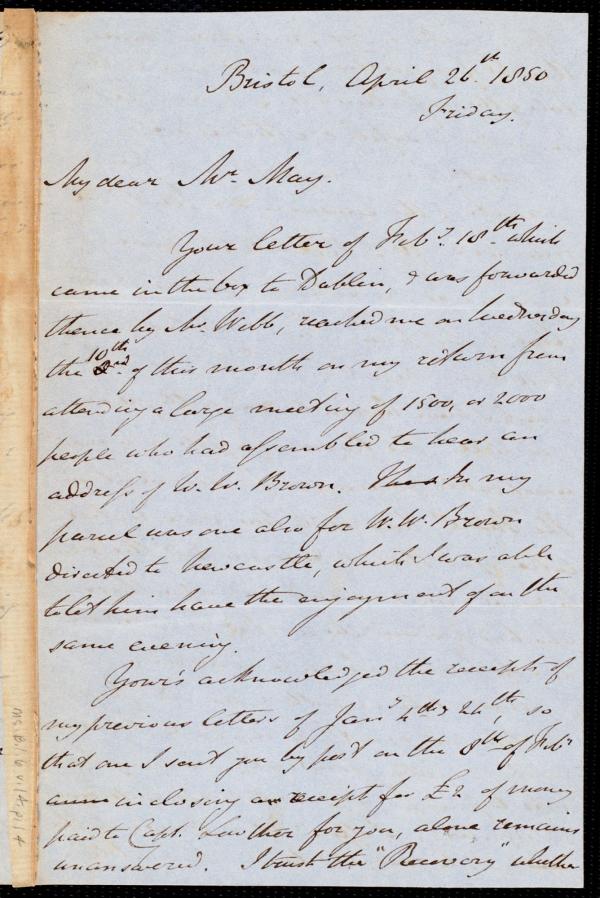 Bristol, April 26th. 1850
Friday.
My dear Mr. May.
Your letter of Feby. 18th. which
came in the box to Dublin, & was forwarded
thence by Mr. Webb, reached me on Wednesday
the 10th of this month on my return from
attending a large meeting of 1500, or 2000
people who had assembled to hear an
address of W. W. Brown. In my
parcel was one also for W. W. Brown
directed to Newcastle, which I was able
to let him have the enjoyment of on the
same evening.
Your's acknowledged the receipt of
my previous letters of Jany. 4th & 24th, so
that one I sent you by post on the 8th of Feby.
inclosing a receipt for £2 of money
paid to Capt. Lowther for you, alone remains
unanswered. I trust the "Recovery" whether
Ms. B.1.6 v.14, p.14